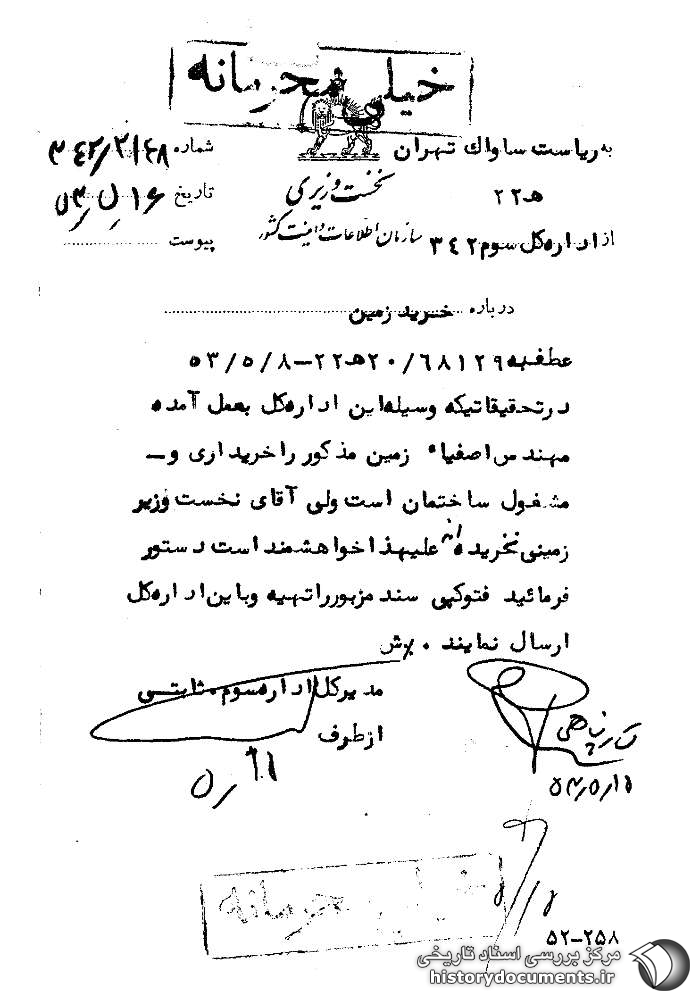 خیلی محرمانه
به ریاست ساواک تهران
ﻫ ۲۲
از اداره کل سوم ۳۴۲
نخست وزیری
سازمان اطلاعات و امنیت کشور
شماره
تاریخ ۱۶ ر ۵ ر ۵۳
پیوست
درباره خرید زمین
عطف به ۲۰/۶۸۱۲۹ﻫ۲۲–۵۳/۵/۸
در تحقیقاتیکه وسیله این اداره کل بعمل آمده
مهندس اصفیاء زمین مذکور را خریداری و ــ
مشغول ساختمان است ولی آقای نخست وزیر
زمینی نخریده اند علیهذا خواهشمند است دستور
فرمائید فتوکپی سند مزبور را تهیه و باین اداره کل
ارسال نمایند .
مدیرکل اداره سوم . ثابتی
از طرف
۵۲–۲۵۸
مرکز بررسی اسناد تاریخی
historydocuments.ir